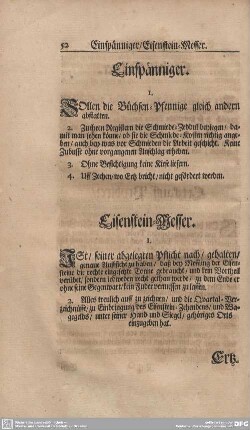 52 Einspänniger/Eisenstein-Messer.
Einspänniger.
1.
Sollen die Büchsen-Pfennige gleich andern
abstatten.
2. Zu ihren Registern die Schmiede-Zeddul beylegen/ da-
mit man sehen könne/ ob sie die Schmiede-Kosten richtig ange-
ben/ auch bey was vor Schmieden die Arbeit geschicht. Keine
Zubusse ohne vorgangenen Anschlag erheben.
3. Ohne Besichtigung keine Erze liefern.
4. Uff Zechen/wo Ertz bricht/nicht gefördert werden.
Eisenstein-Messer.
1.
Ist/ seiner abgelegten Pflicht nach/ gehalten/
genaue Auffsicht zu haben/ daß bey Messung der Eisen-
steine die rechte eingesetzte Tonne gebraucht/ und kein Vortheil
verübet/ sondern ich worden nicht gethan werde/ zu dem Ende er
ohne seine Gegenwart/ kein Fuder vermessen zu lassen.
2. Alles treulich auff zu zeichnen/ und die Quartal-Ver-
zeichnisse/ zu Einbringung des Eisenstein-Zehendens/ und Wa-
gegelds/ unter seiner Hand und Siegel/ gehöriges Orts
einzugeben hat.
Ertz.